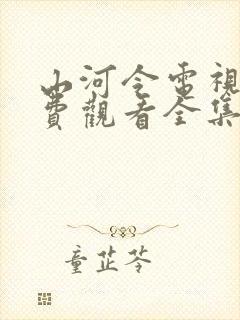 山河令電視
費觀看全集
童芷苓